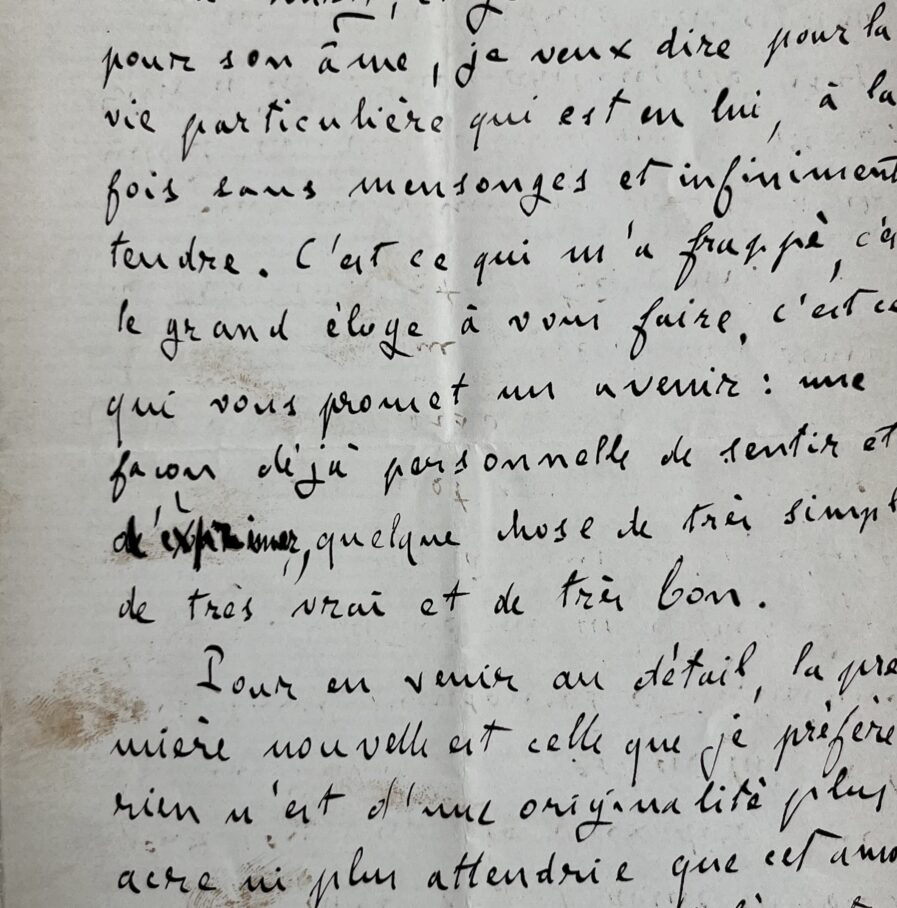 pour son âme, je veux dire pour la
vie particulière qui est en lui, à la
fois sans mensonges et infiniment
tendre. C'est ce qui m'a frappé, c'es
le grand éloge à vous faire, c'est ce
qui vous promet un avenir : une
façon déjà personnelle de sentir et
d'exprimer, quelque chose de très simpl
de très vrai et de très bon.
Pour en venir au détail, la pre
mière nouvelle est celle que je préfère
rien n'est d'une originalité plus
acre ni plus attendrie que cet amo